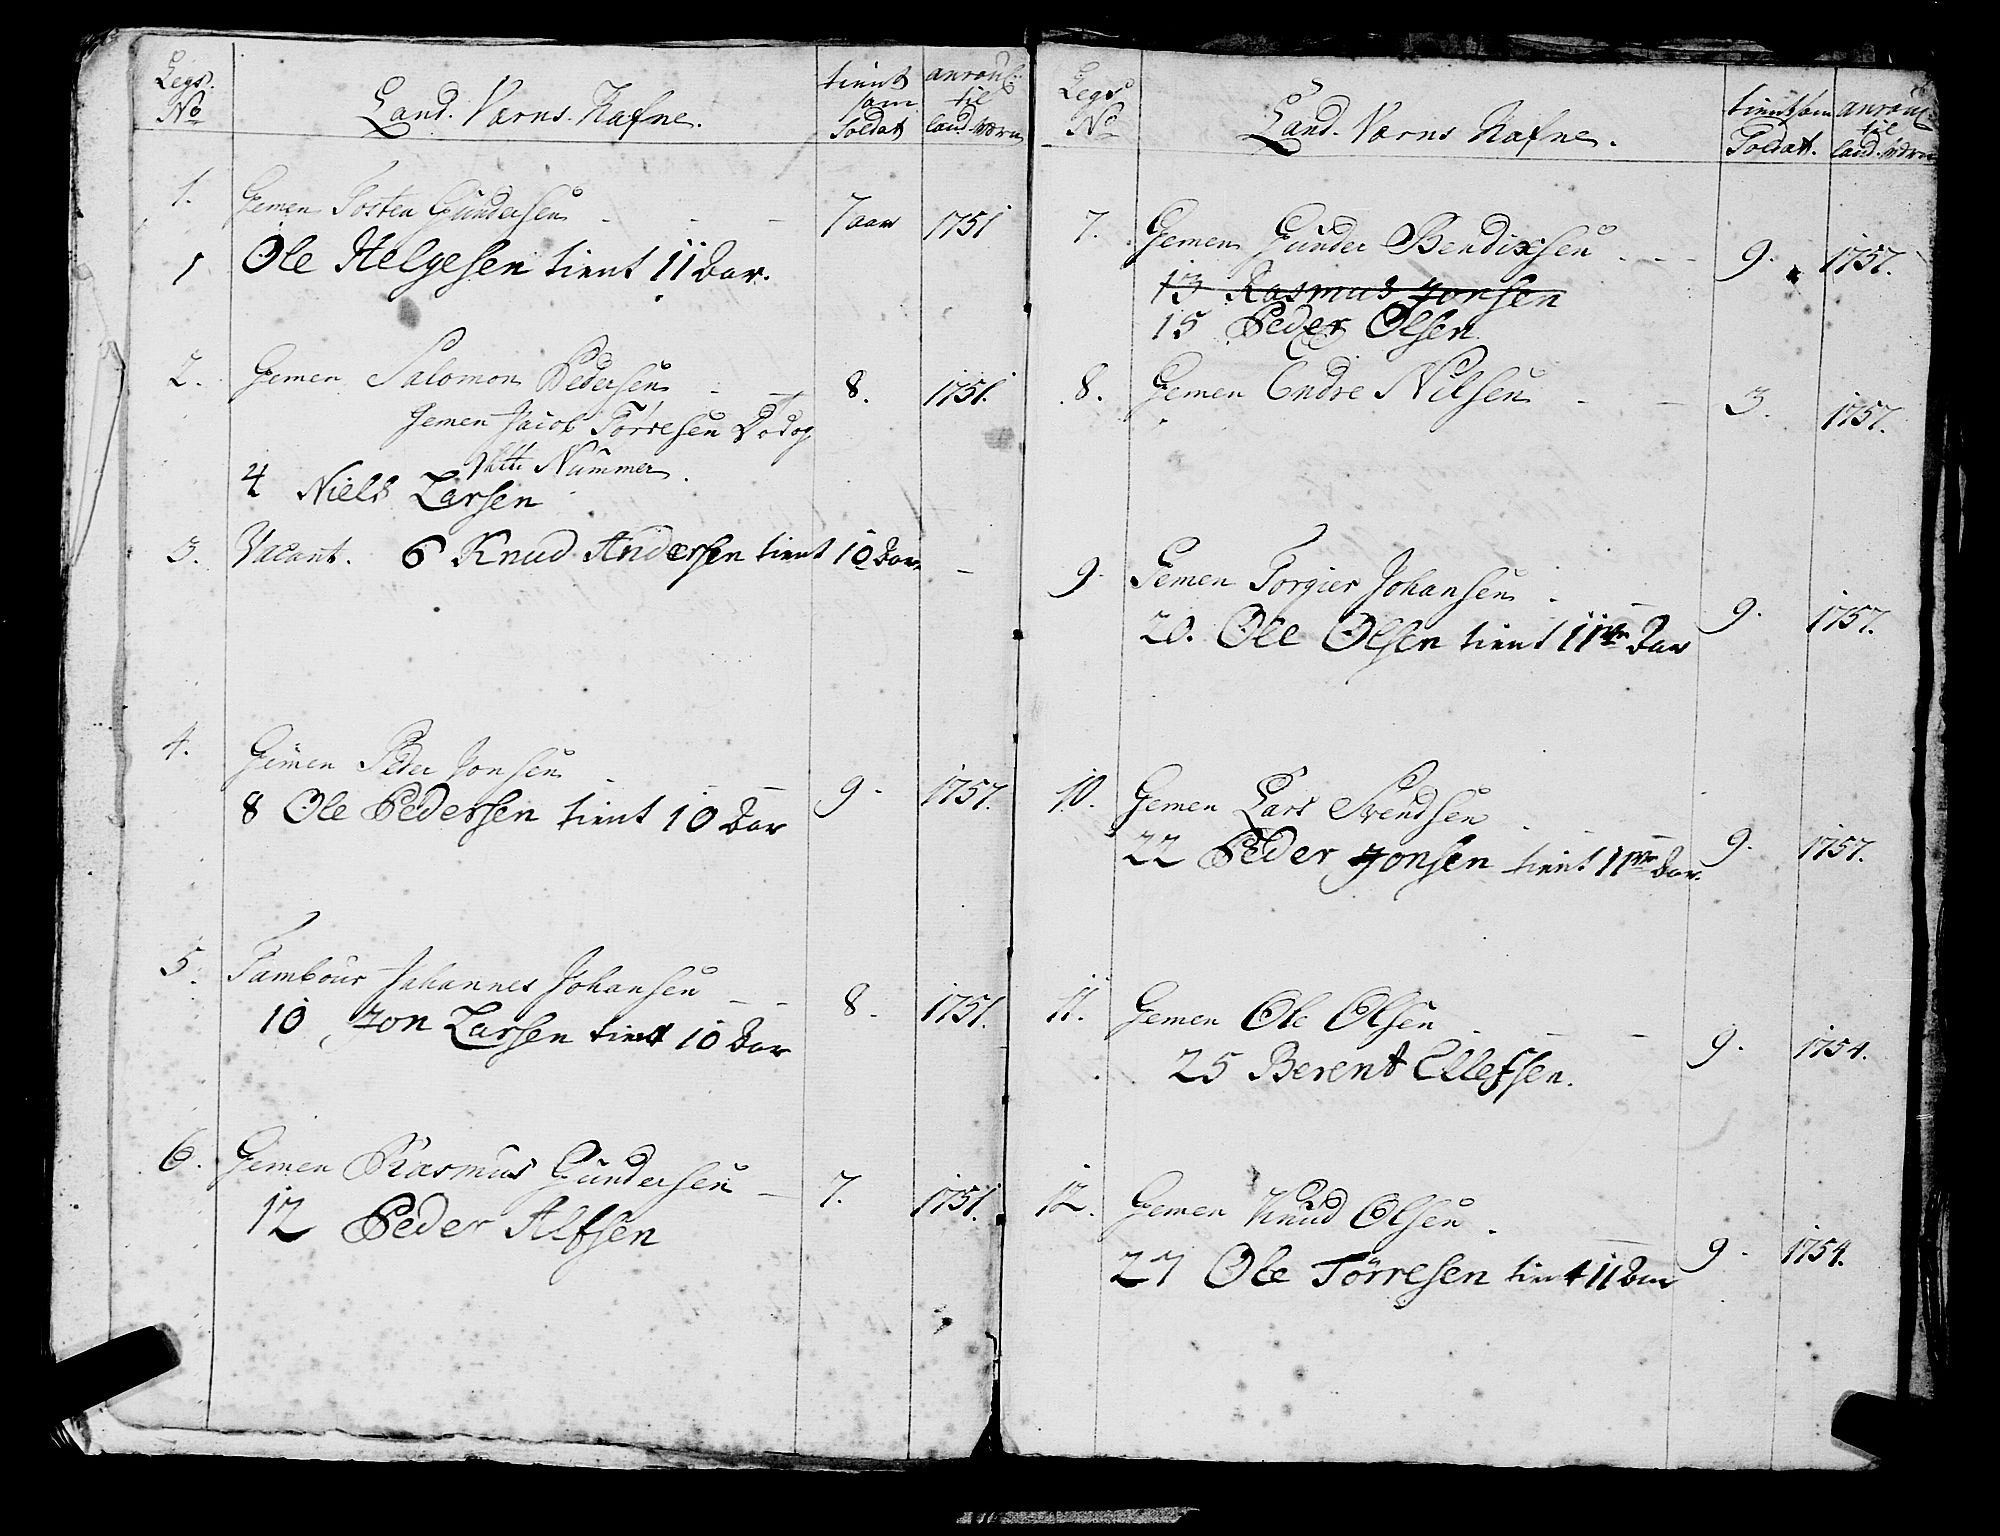 Legs. No
Land. Værns. Nafne.
tient som Soldat
anroul: til land-Værn
1. Gemen Tosten Gundersen - - - 7 aar 1751
1 Ole Helgesen tient 11 Aar.
2. Gemen Salomon Pedersen - - 8. 1751.
Gemen Jacob Törresen Dod og
Nummer.
4 Niels Larsen
3. Vacant. 6 Knud Andersen tient 10 Aar. -
4. Gemen Peder Jonsen - - - 9 - 1757.
8 Ole Pedersen tient 10 Aar
5. Tambour Johannes Johansen - - 8 - 1751.
10 Jon Larsen tient 10 Aar
6. Gemen Rasmus Gundersen - 7. 1751.
12 Peder Alfsen
Legs No
Land. Værns Nafne.
tient som Soldat.
anroul: til land-Værn
7. Gemen Gunder Bendixsen - - - 9. 1757.
13 Rasmus Jonsen
15 Peder Olsen
8. Gemen Endre Nilsen - - 3. 1757.
9. Gemen Torgier Johansen - - 9. 1757.
20. Ole Olsen tient 11 Aar
10. Gemen Lars Svendsen - - - 9. 1757.
22 Peder Jonsen tient 11 Aar.
11. Gemen Ole Olsen - - - 9. 1754.
25 Berent Ellefsen.
12. Gemen Knud Olsen - - 9. 1754.
27 Ole Törresen tient 11 Aar